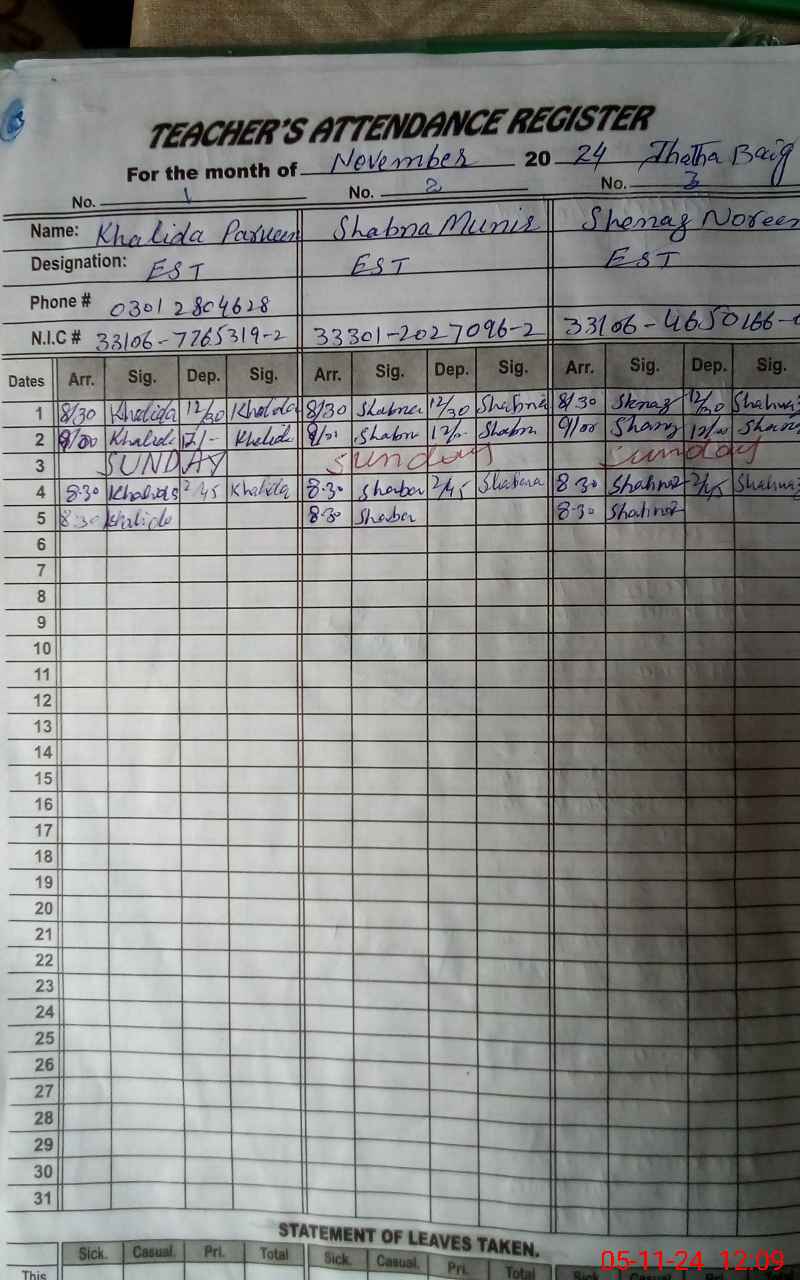 TEACHER'S ATTENDANCE REGISTER
For the month of November 2024 Thatha Baig
No. 1 No. 2 No. 3
Name: Khalida Parveen Shabna Munir Shenaz Noreen
Designation: EST EST EST
Phone # 0301 2804628
N.I.C # 33106-7765319-2 33301-2027096-2 33106-4650166-
Dates Arr. Sig. Dep. Sig. Arr. Sig. Dep. Sig. Arr. Sig. Dep. Sig.
1 8/30 Khalida 12/30 Khalida 8/30 Shabna 12/30 Shabna 8/30 Shenaz 12/30 Shahnaz
2 9/00 Khalida 12/- Khalida 9/00 Shabn 12/- Shabn 9/00 12/00
3 SUNDAY Sunday Sunday
4 8:30 Khalida 2/45 Khalida 8:30 Shabna 2/45 Shabana 8:30 Shahnaz 2/45 Shahnaz
5 8:30 Khalida 8:30 Shabna 8:30 Shahnaz
6
7
8
9
10
11
12
13
14
15
16
17
18
19
20
21
22
23
24
25
26
27
28
29
30
31
STATEMENT OF LEAVES TAKEN.
Sick. Casual. Pri. Total Sick. Casual. Pri. Total Sick. Casual.
This
05-11-24 12:09